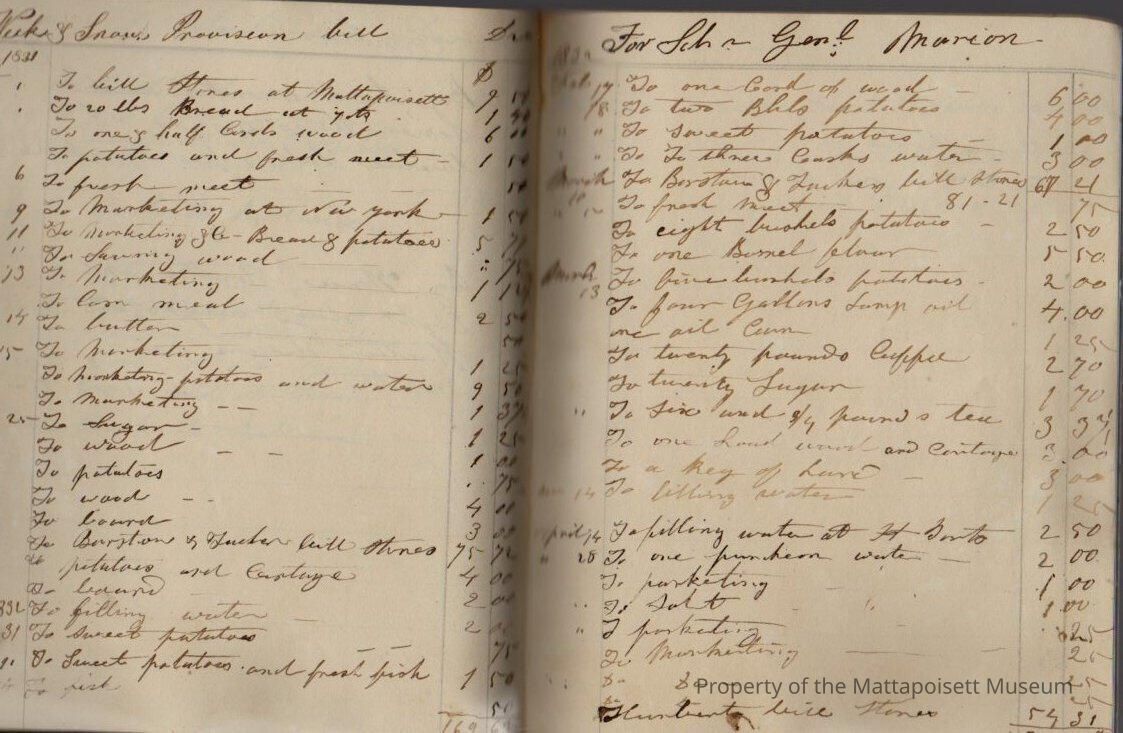 & Snows Provision bill
For Sch r Genl. Marion
1831
To bill Stores at Mattapoisett 9
To 20 lbs Bread at 7 cts 1
To one & half Cords wood 6
To potatoes and fresh meet 1 50
6 To fresh meet 50
9 To Marketing at New york 1 50
11 To Marketing &c - Bread & potatoes 5
" To Sawing wood " 75
13 To Marketing 1
To Corn meal
14 To butter 2
15 To Marketing
To Marketing potatoes and water 9 50
To Marketing 1 37
25 To Sugar 1 25
To wood 1 00
To potatoes 75
To wood 4 00
To board 3
To Barstow & Tucker bill Stores 75 72
To potatoes and Cartage 4 00
To board 2 00
To filling water 2
31 To Sweet potatoes 75
To Sweet potatoes and fresh fish 1 50
To fish 50
169
17 To one Cord of wood 6 00
18 To two Bbls potatoes 4 00
" " To Sweet potatoes 1 00
" To To three Casks water 3 00
March To Barstow & Tuckers bill Stores 21
To fresh meet 81-21 75
To eight bushels potatoes - 2 50
To one Barrel flour 5 50
March 13 To five bushels potatoes - 2 00
To four Gallons Lamp oil 4.00
one oil Cann 1 25
To twenty pounds Coffee 2 70
To twenty Sugar 1 70
" To Six and 3/4 pounds tea 3 37
To one Load wood and Cartage 3 00
To a Keg of Lard 3 00
14 To filling water 1 25
April 14 To filling water at 2 50
" 28 To one puncheon water 2 00
To marketing 1 00
" To Salt 1 00
" T marketing 25
To Marketing 25
bill Stores 54 31
Property of the Mattapoisett Museum